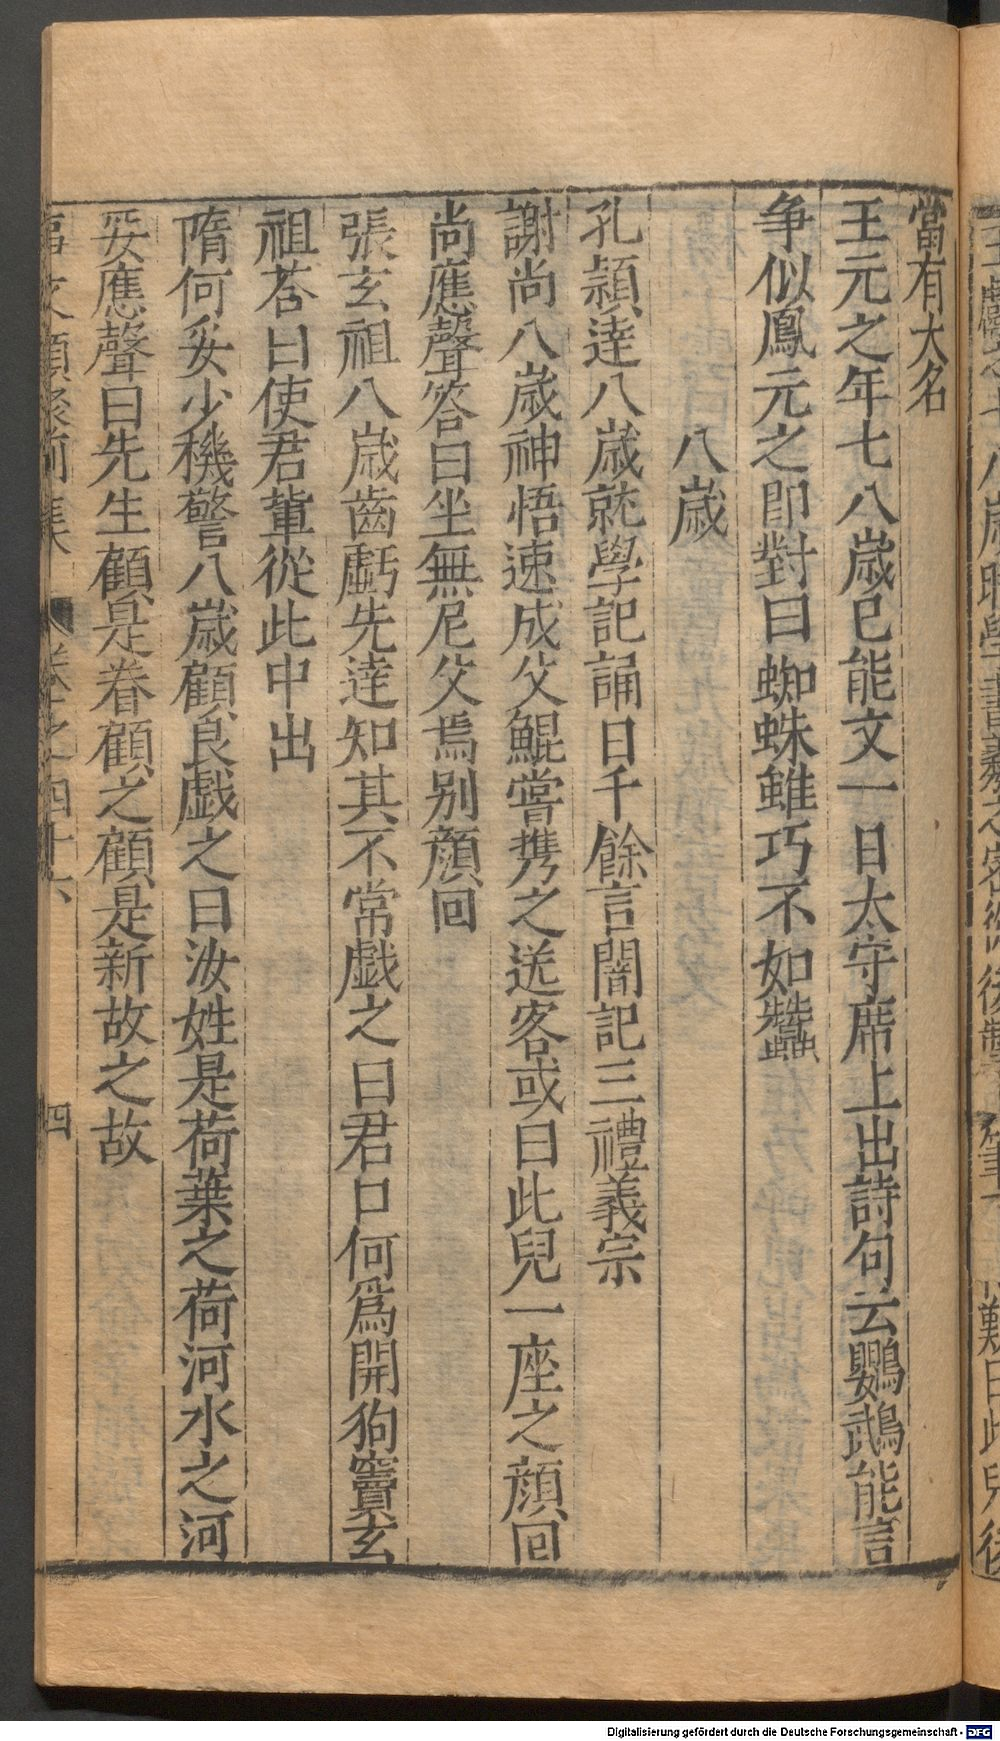 當有大名
王元之年七八歲已能文一日太守席上出詩句云鸚鵡能言
争似鳳元之即對曰蜘蛛雖巧不如蠶
八歲
孔頴逹八歲就學記誦日千餘言闇記三禮義宗
謝尚八歲神悟速成父鯤嘗携之送客或曰此兒一座之顔回
尚應聲答曰坐無尼父焉别顔回
張玄祖八歲齒虧先逹知其不常戯之曰君口何爲開狗竇玄
祖荅曰使君軰從此中出
隋何妥少機警八歲顧良戯之曰汝姓是荷葉之荷河水之河
妥應聲曰先生顧是眷顧之顧是新故之故
事文類聚前集 卷之四十六 四
Digitalisierung gefördert durch die Deutsche Forschungsgemeinschaft - DFG